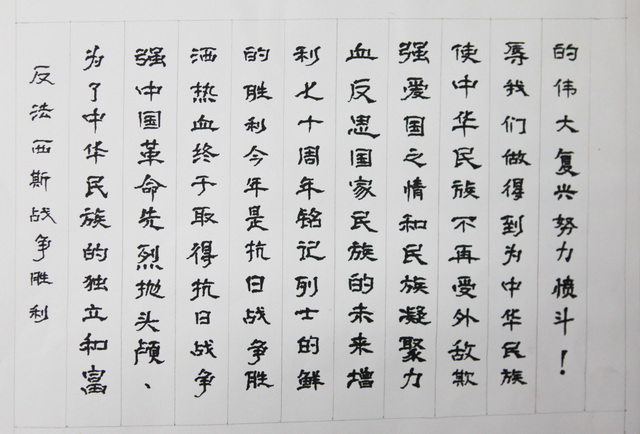 反法西斯战争胜利
为了中华民族的独立和富
强中国革命先烈抛头颅、
洒热血终于取得抗日战争
的胜利今年是抗日战争胜
利七十周年铭记列士的鲜
血反思国家民族的未来增
强爱国之情和民族凝聚力
使中华民族不再受外敌欺
辱我们做得到为中华民族
的伟大复兴努力愤斗！